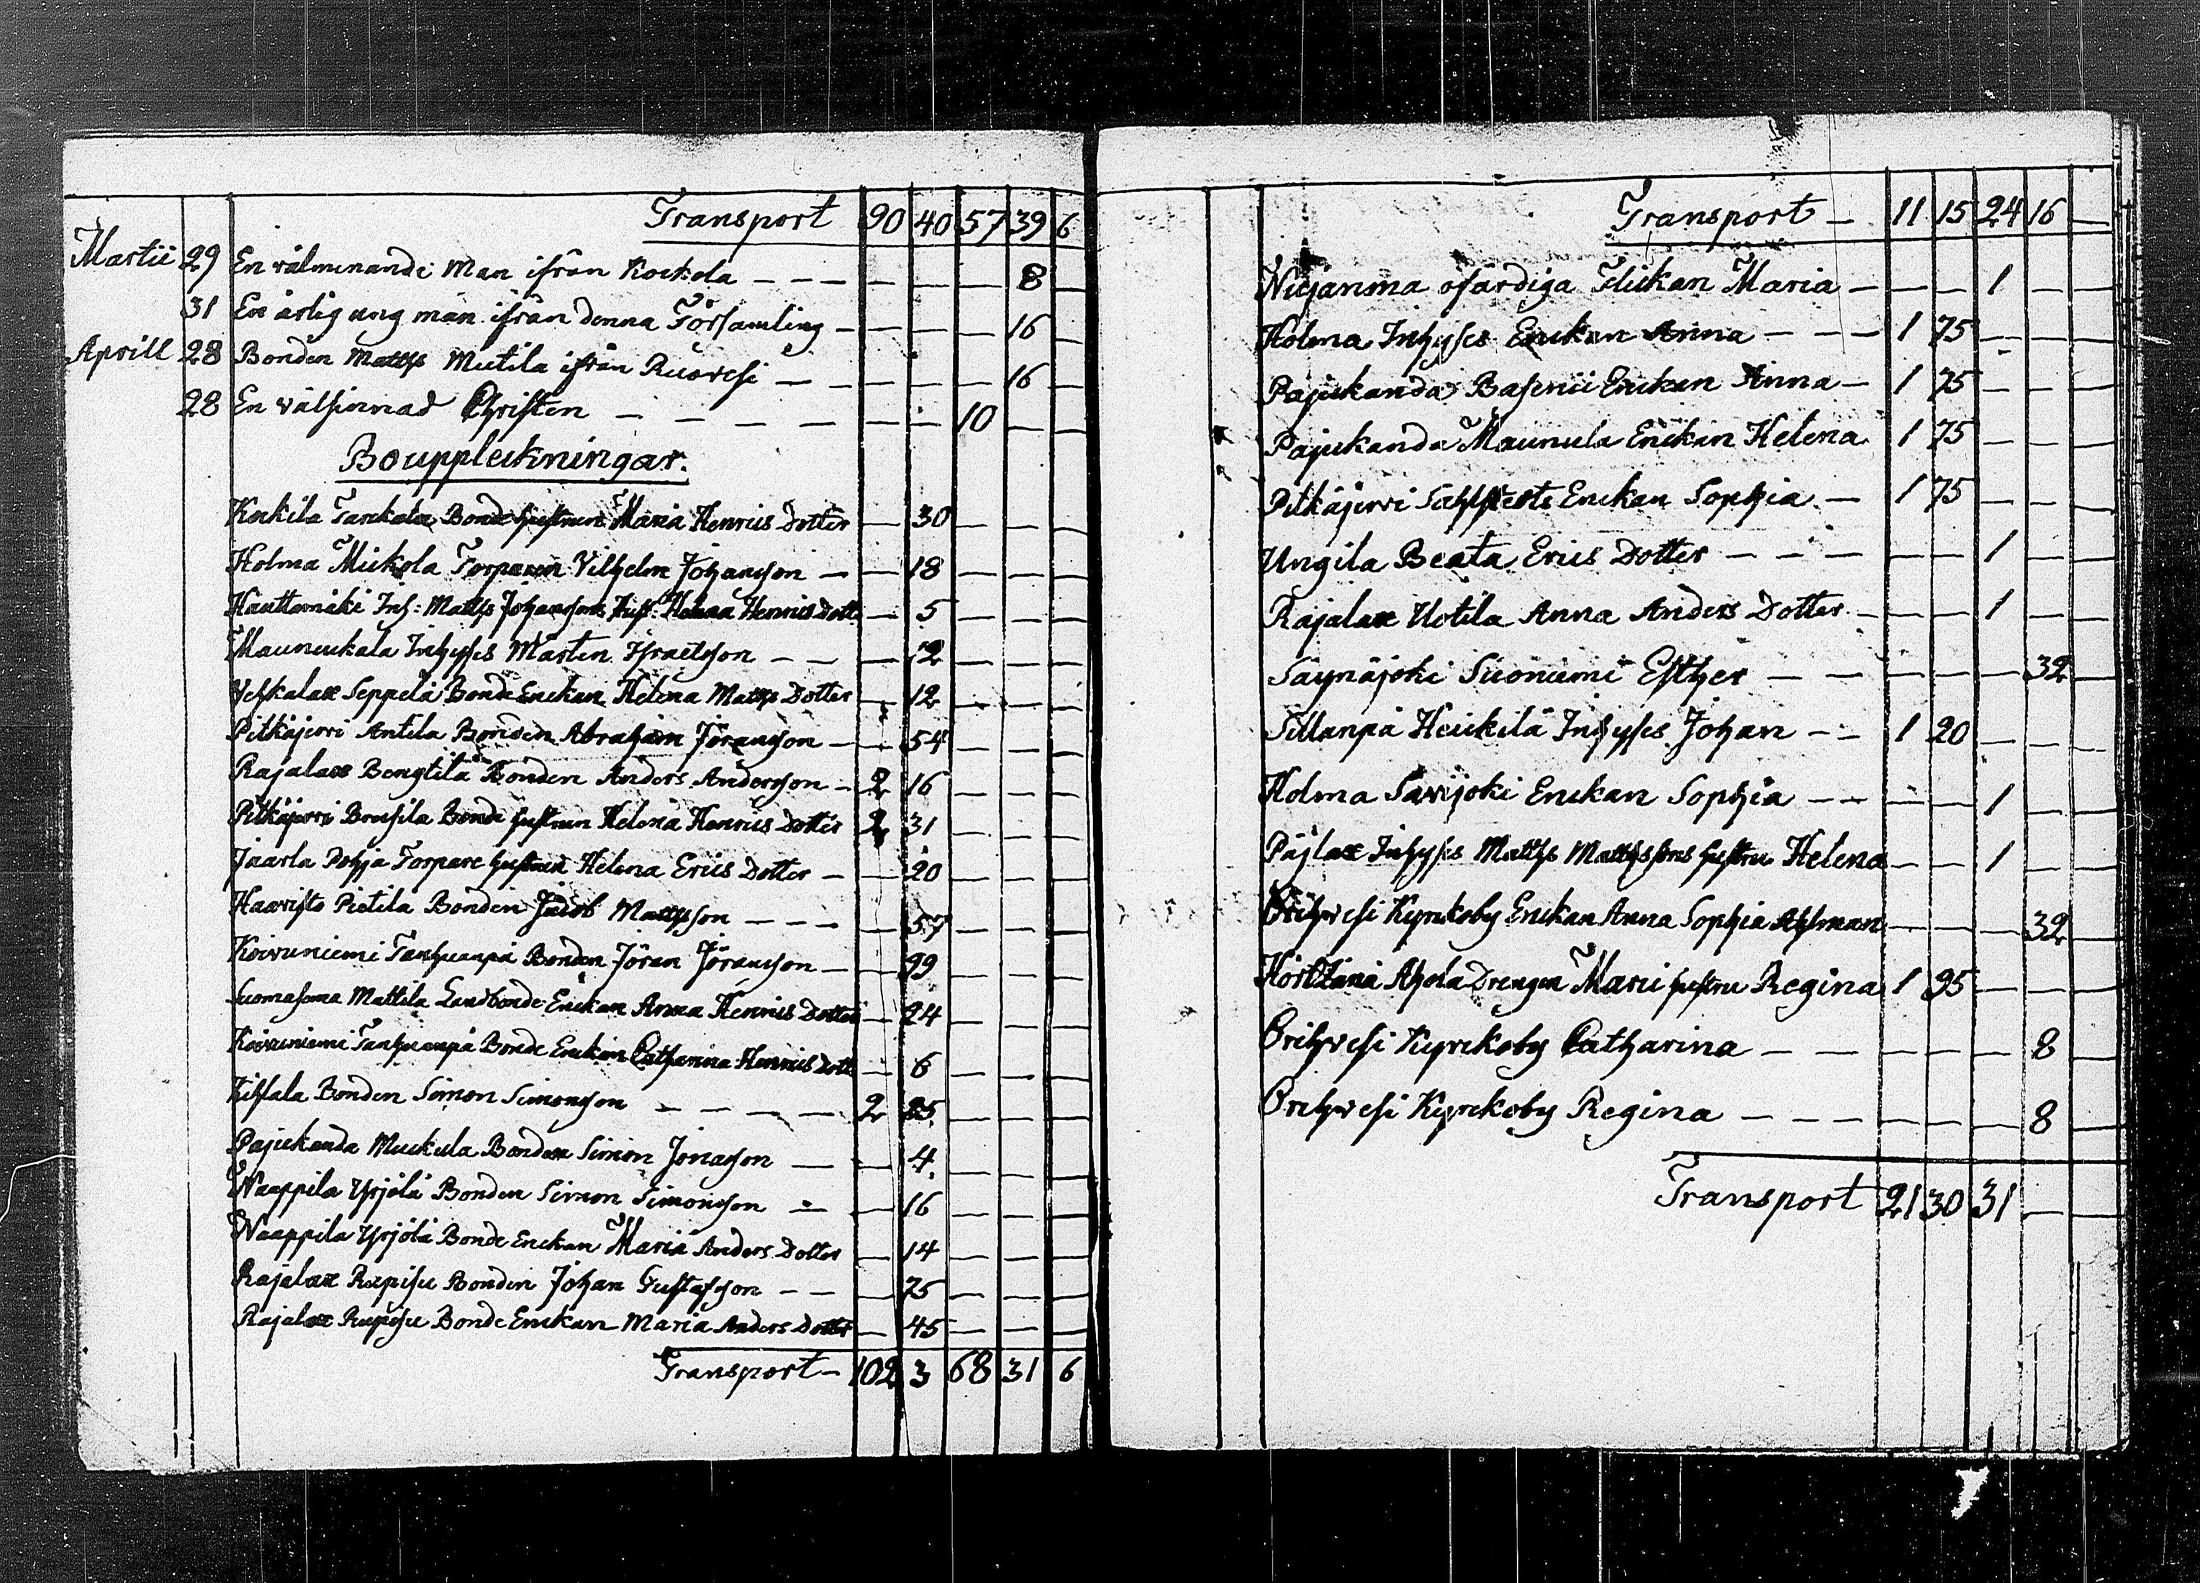 Transport 90 40 57 39 6
Martii 29 En välmenande Man ifrån Kockola — — — — — — 8 —
31 En ärlig ung man ifrån denna Församling — — — — 16 —
Aprill 28 Bonden Matts Mutila ifrån Ruovesi — — — — — 16 —
28 En välsinnad Christen — — — — — — 10 — —
Bouppteckningar.
Kockila Bonde Hustrun Maria Henrics Dotter — 30 — — —
Holma Mickola Torparen Vilhelm Johansson — — 18 — — —
Hauttamäki Inh: Matts Johanssons Hust: Helena Henrics Dott — 5 — — —
Mauneukala Inhyses Mårten Israelsson — — — 12 — — —
Veskalax Seppelä Bonde Enckan Helena Matts Dotter — 12 — — —
Pitkäjervi Antila Bonden Abraham Jöransson — — 54 — — —
Rajalax Bengtilä Bonden Anders Andersson — 2 16 — — —
Pitkäjervi Brusila Bonde Hustrun Helena Henrics Dotter 2 31 — — —
Jaarla Pohja Torpare Hustrun Helena Erics Dotter — — 20 — — —
Haavisto Pietila Bonden Jacob Mattsson — — — — 57 — — —
Koivuniemi Tanhuanpä Bonden Jöran Jöransson — — 99 — — —
Suomasema Mattila Landbonde Enckan Anna Henrics Dotter — 24 — — —
Koivuniemi Tanhuanpä Bonde Enckan Catharina Henrics Dott — 6 — — —
Bonden Simon Simonsson — — — — 2 25 — — —
Pajukanda Muckula Bonden Simon Jonasson — — 4 — — —
Naappila Yrjölä Bonden Simon Simonsson — — 16 — — —
Naappila Yrjölä Bonde Enckan Maria Anders Dotter — 14 — — —
Rajalax Rupisu Bonden Johan Gustafsson — — — 75 — — —
Rajalax Rupisu Bonde Enckan Maria Anders Dotter — 45 — — —
Transport — 102 3 68 31 6
Transport — 11 15 24 16 —
ofärdiga Flickan Maria — — — 1 — —
Holma Inhyses Enckan Anna — — — 1 75 — — —
Pajukanda Enckan Anna — 1 75 — — —
Pajukanda Maunula Enckan Helena 1 75 — — —
Pitkäjervi Enckan Sophia — 1 75 — — —
Ungila Beata Erics Dotter — — — — — 1 — —
Rajalax Uotila Anna Anders Dotter — — — 1 — —
Säynäjoki Suoniemi Esther — — — — — 32 —
Sillanpä Heickilä Inhyses Johan — — 1 20 — — —
Holma Savijoki Enckan Sophia — — — — 1 — —
Päjlax Inhyses Matts Mattssons Hustru Helena — — 1 — —
Orihvesi Kyrckoby Enckan Anna Sophia Ahlman — — — 32 —
Ahola Drengen Hustru Regina 1 95 — — —
Orihvesi Kyrckoby Catharina — — — — — 8 —
Orihvesi Kyrckoby Regina — — — — — — 8 —
Transport 21 30 31 — —